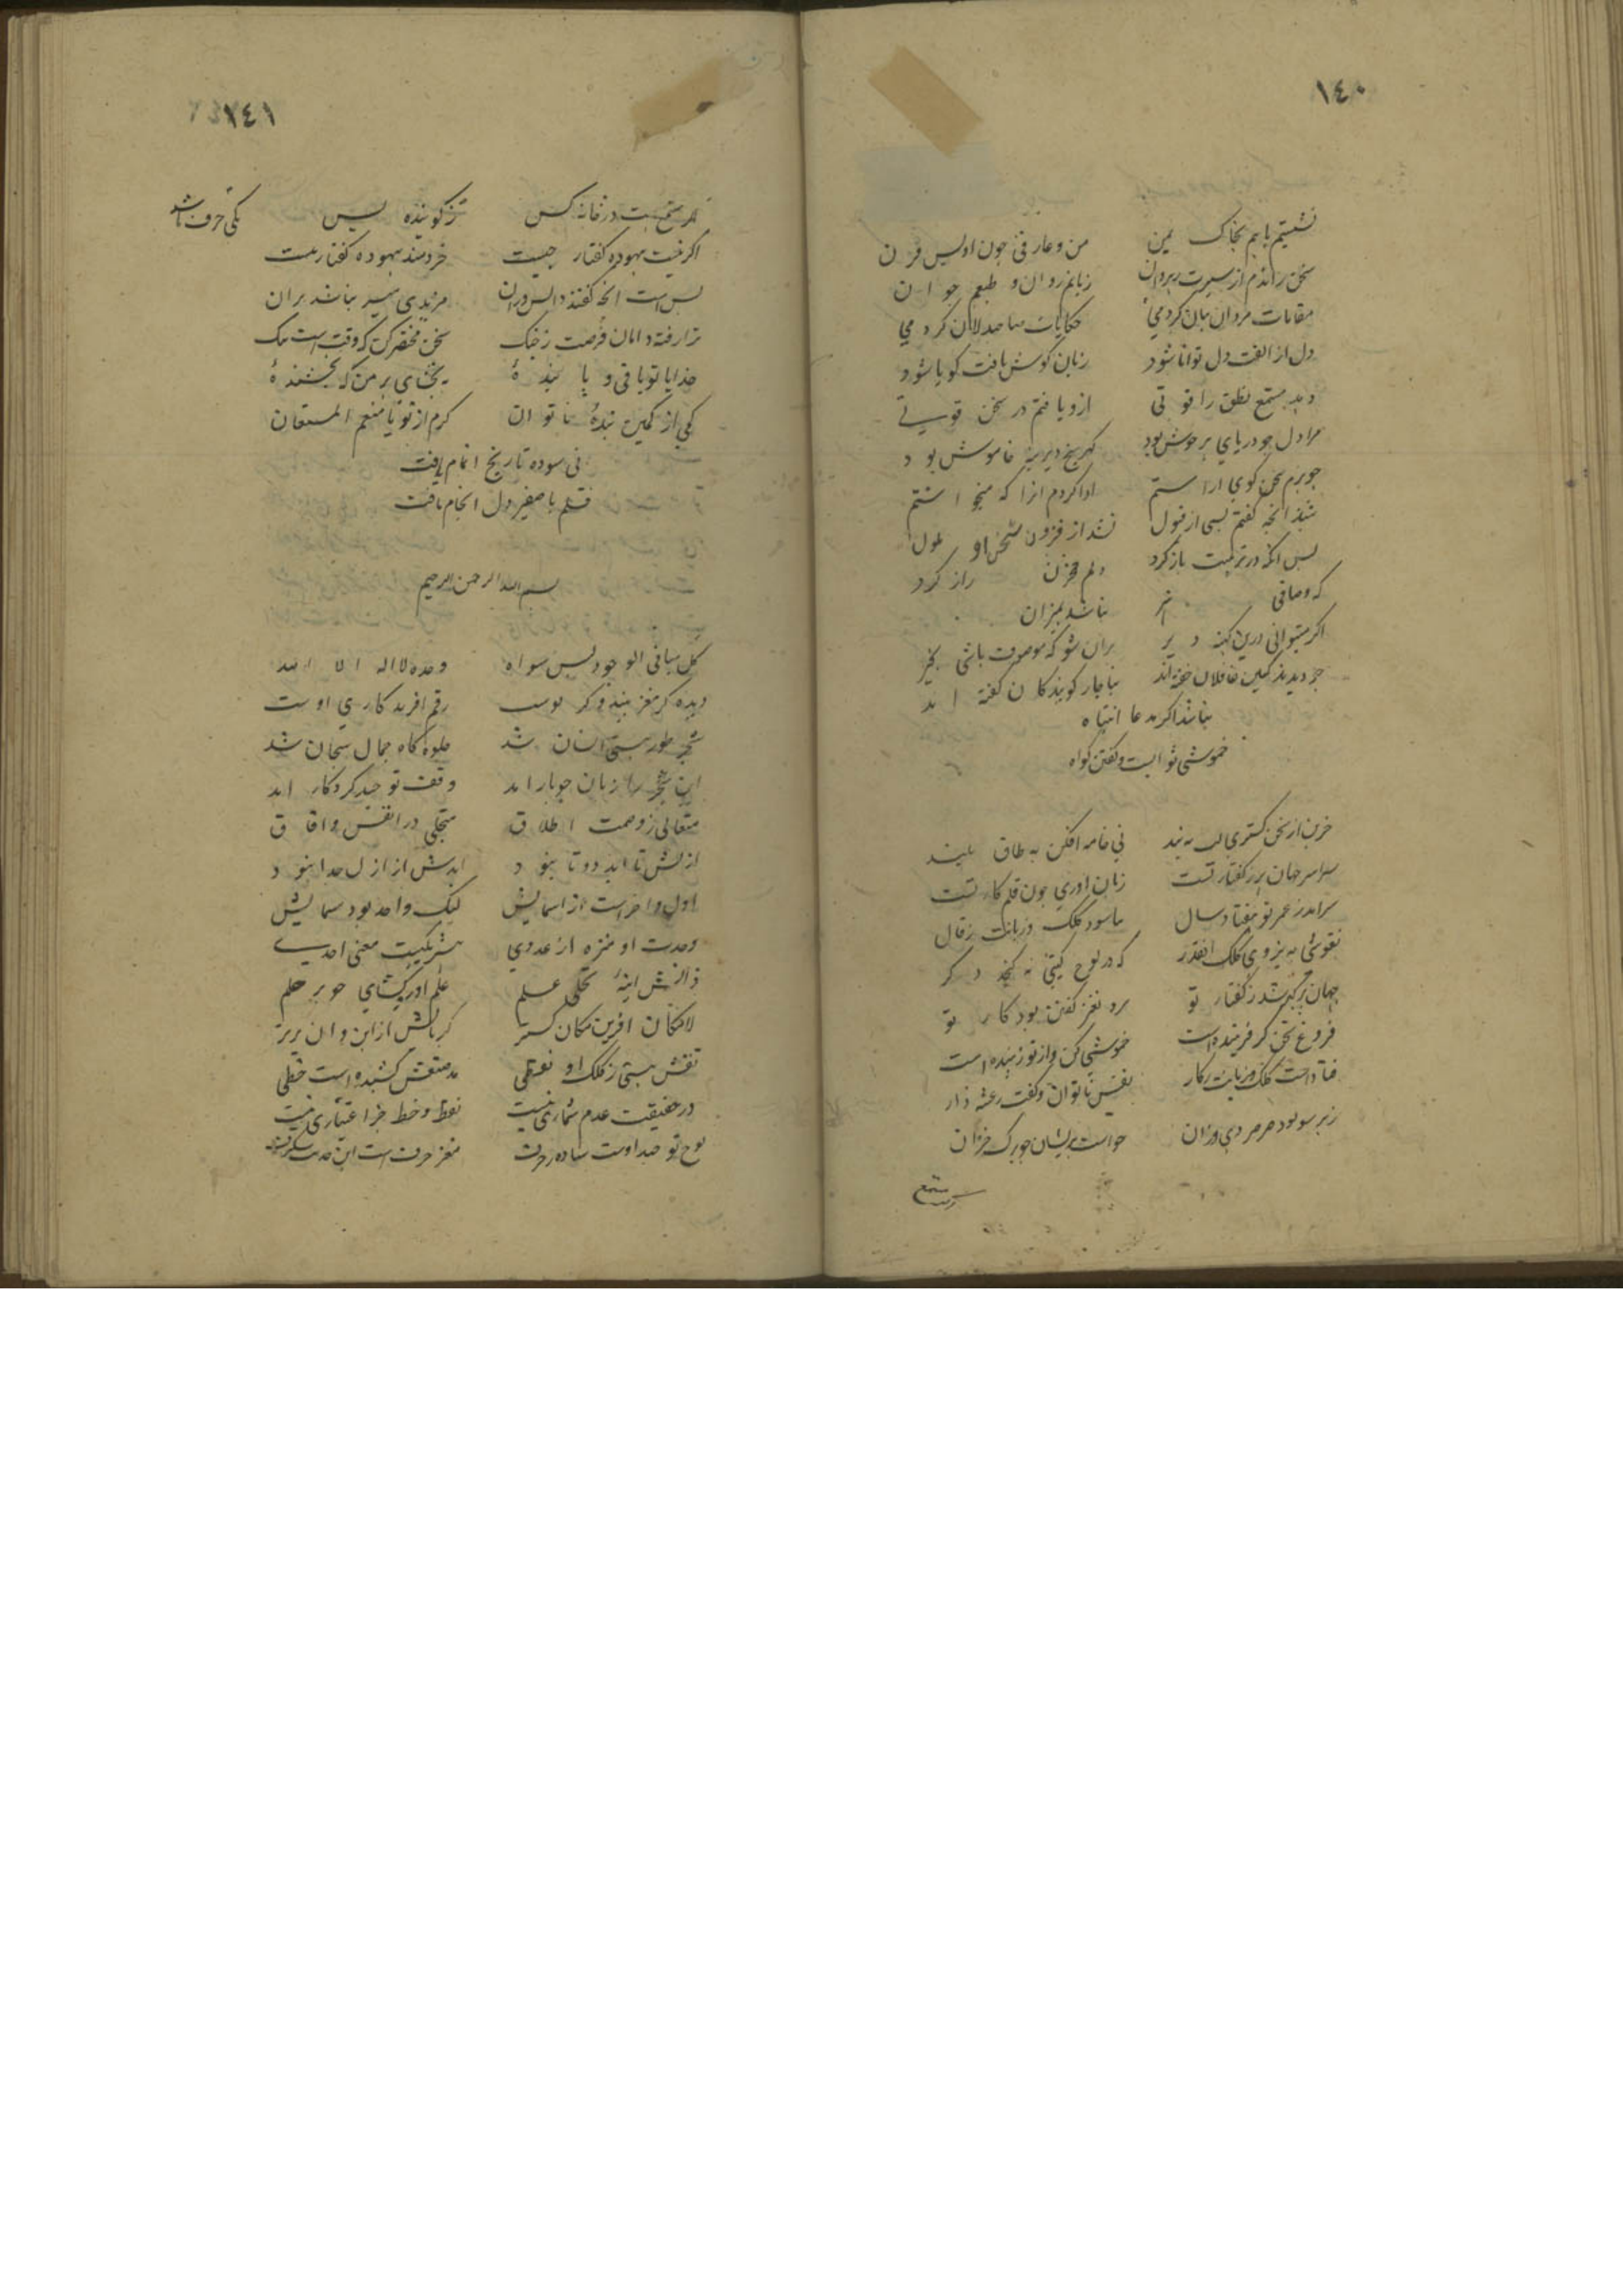 ١٤٠
نشستیم باهم بخاک یمن من و عارفی چون اویس قرن
سخن راندم از سیرت رهروان زبانم روان و طبعم جوان
مقامات مردان بیان کردمی حکایات صاحبدلان کردمی
دل از الفت دل توانا شود زبان گوش یافت گویا شود
دهد مستمع نطق را قوتی ازو یافتم در سخن قوتی
مرا دل چو دریای پر جوش بود خاموش بود
چو بزم سخن گوی آراستم ادا کردم آنرا که میخواستم
شنید آنچه گفتم بسی از قبول نشد از فزون سخن او ملول
پس آنگه در تربیت باز کرد دلم مخزن راز کرد
که وصافی نباشد بمیزان
اگر میتوانی درین کهنه دیر بران شو که موصوف باشی بخیر
چو دیدند کین غافلان خفته اند بناچار گویندگان گفته اند
نباشد اگر مدعا انتباه
خموشی ثوابست و گفتن گناه
حزین از سخن گستری لب ببند نی خامه افکن به طاق بلند
سراسر جهان پر ز گفتار تست زبان آوری چون قلم کار تست
سرآمد ز عمر تو هفتاد سال نیاسود کلک و زبانت ز قال
نقوشی به نیروی کلک آنقدر که در لوح گیتی نه گنجد دگر
جهان پر گهر شد ز گفتار تو نغز گفتن بود کار تو
فروغ سخن گر فریبنده است خموشی کن و از تو زیبنده است
فتاد دست کلک و زبانت ز کار نفس ناتوان و کفت رعشه دار
ز هر سو بود صرصر دی وزان حواست پریشان چو برگ خزان
١٤١
اگر مستمع هست در خانه کس ز گوینده بس یکی حرف باشد
اگر نیست بیهوده گفتار چیست خردمند بیهوده گفتار نیست
بس است آنچه گفتند دانشوران مزیدی میسر نباشد بران
ترا رفته دامان فرصت ز چنگ سخن مختصر کن که وقت است تنگ
خدایا تو باقی و پاینده ببخشای بر من که بخشنده
کمی از کمین بنده ناتوان کرم از تو یا منعم المستعان
نی سوده تاریخ اتمام یافت
قلم با صفیر دل انجام یافت
بسم الله الرحمن الرحیم
کل ما فی الوجود لیس سواه وحده لا اله الا الله
دیده گر مغز بیند و گر پوست رقم آفریدکاری اوست
شجر طور هستی انسان شد جلوه گاه جمال سبحان شد
این شجر را زبان چو بار آمد وقف توحید کردگار آمد
متعالی ز وصمت اطلاق متجلی در انفس و آفاق
ازلش تا ابد دو تا نبود ابدش از ازل جدا نبود
اول و آخرست از اسمایش لیک واحد بود مسمایش
وحدت او منزه از عددی شریکیت معنی احدی
ذاتش آینه تجلی علم علم او
لامکان آفرین مکان گستر کبریایش از این و آن برتر
نقش هستی ز کلک او نقطی مد صنعش کشیده است خطی
در حقیقت عدم شماری نیست نقط و خط جز اعتباری نیست
لوح تو صید اوست ساده ز حرف مغز حرف است این حدیث شگرف